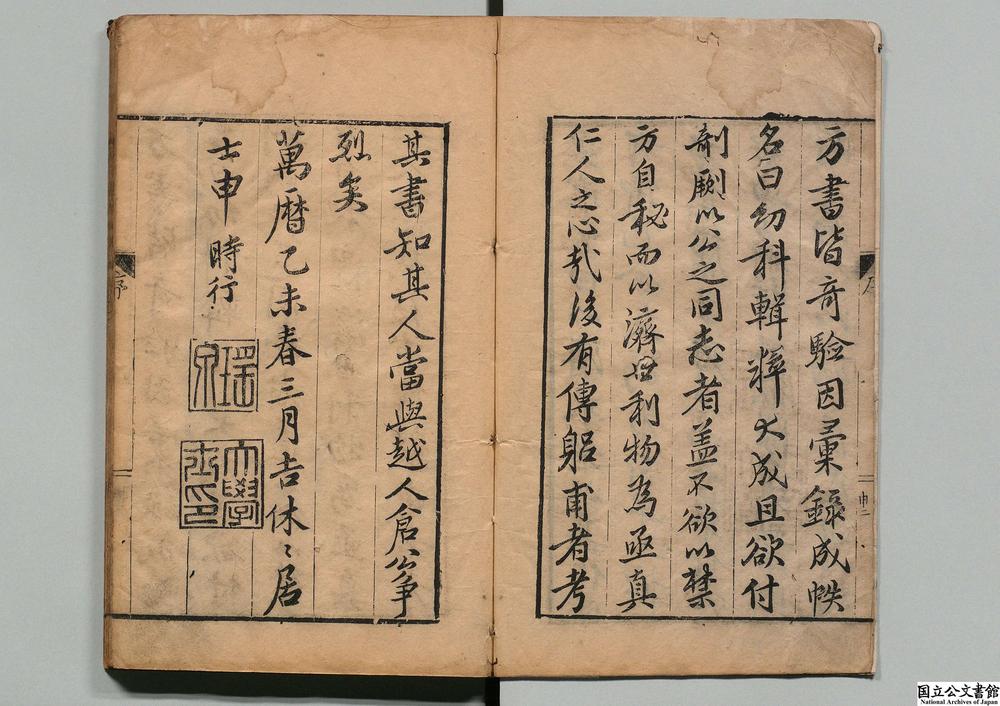 方書皆奇驗因彙錄成帙
名曰幼科輯粹大成且欲付
剞劂以公之同志者盖不欲以禁
方自秘而以濟世利物為亟真
仁人之心哉後有傳躬甫者考
序
申二
其書知其人當與越人倉公爭
烈矣
萬曆乙未春三月吉休〻居
士申時行
瑶泉
大學士印
序
国立公文書館
National Archives of Japan